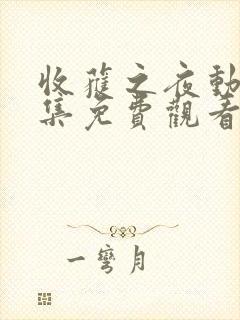 收蓷之夜動
集免費觀看
一彎月